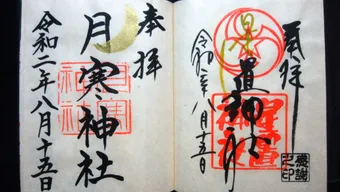 奉拝
星置神社
令和二年八月十五日
感謝之印
奉拝
月寒神社
令和二年八月十五日